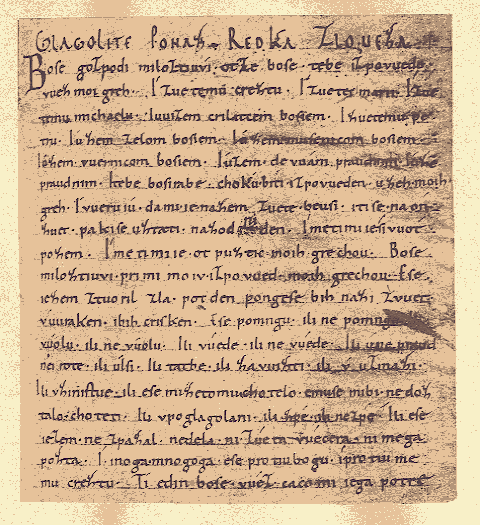 GLAGOLITE PONAZ REDKA ZLOUEZA.
Bose gozpodi miloztiuvi. otze bose. tebe izpovuede.
vuez moi greh. I zuetemu creztu. I zuetei marii. I zue
temu michaelu. Iuuizem crilatcem bosiem. I zuetemu pe
tru. Iu zem zelom bosiem. Iuzem musenicom bosiem.
Iuzem vuernicom bosiem. Iuzem. devuam praudnim. Iuzem
praudnim. Itebe bosirabe. chokubiti. izpovueden. uzeh moih
greh. I vueruiu. da mi ie nazem zuete beusi. iti se na on
zuet. pakise uztati. nazodni den. Imeti mi ie sivuot
pozem. Imeti mi ie. otpuztic moih grechou. Bose
miloztiuvi. primi moiv. izpovued. moih grechou. Ese
iezem ztvoril zla. pot den pongese bih nazi zvuet.
vuuraken. ibih crisken. Ese pomngu. ili ne pomngu. Ili
vuolu. ili ne vuolu. Ili vuede. ili ne vuede. Ili u nepraud
nei rote. ili ulsi. Ili tatbe. ili zavuizti. ili v uzmazi.
Ili vzinistue. ili ese mizetomu. chotelo. emuse mibi ne doz
talo. choteti. Ili vpoglagolani. ili zpe. ili nezpe. Ili ese
iezem. ne zpazal. nedela. ni zueta vuecera. ni mega
pozta. I inoga mnogoga. ese protiubogu. iprotiu me
mu creztu. Ti edin bose. vuez. caco mi iega potre